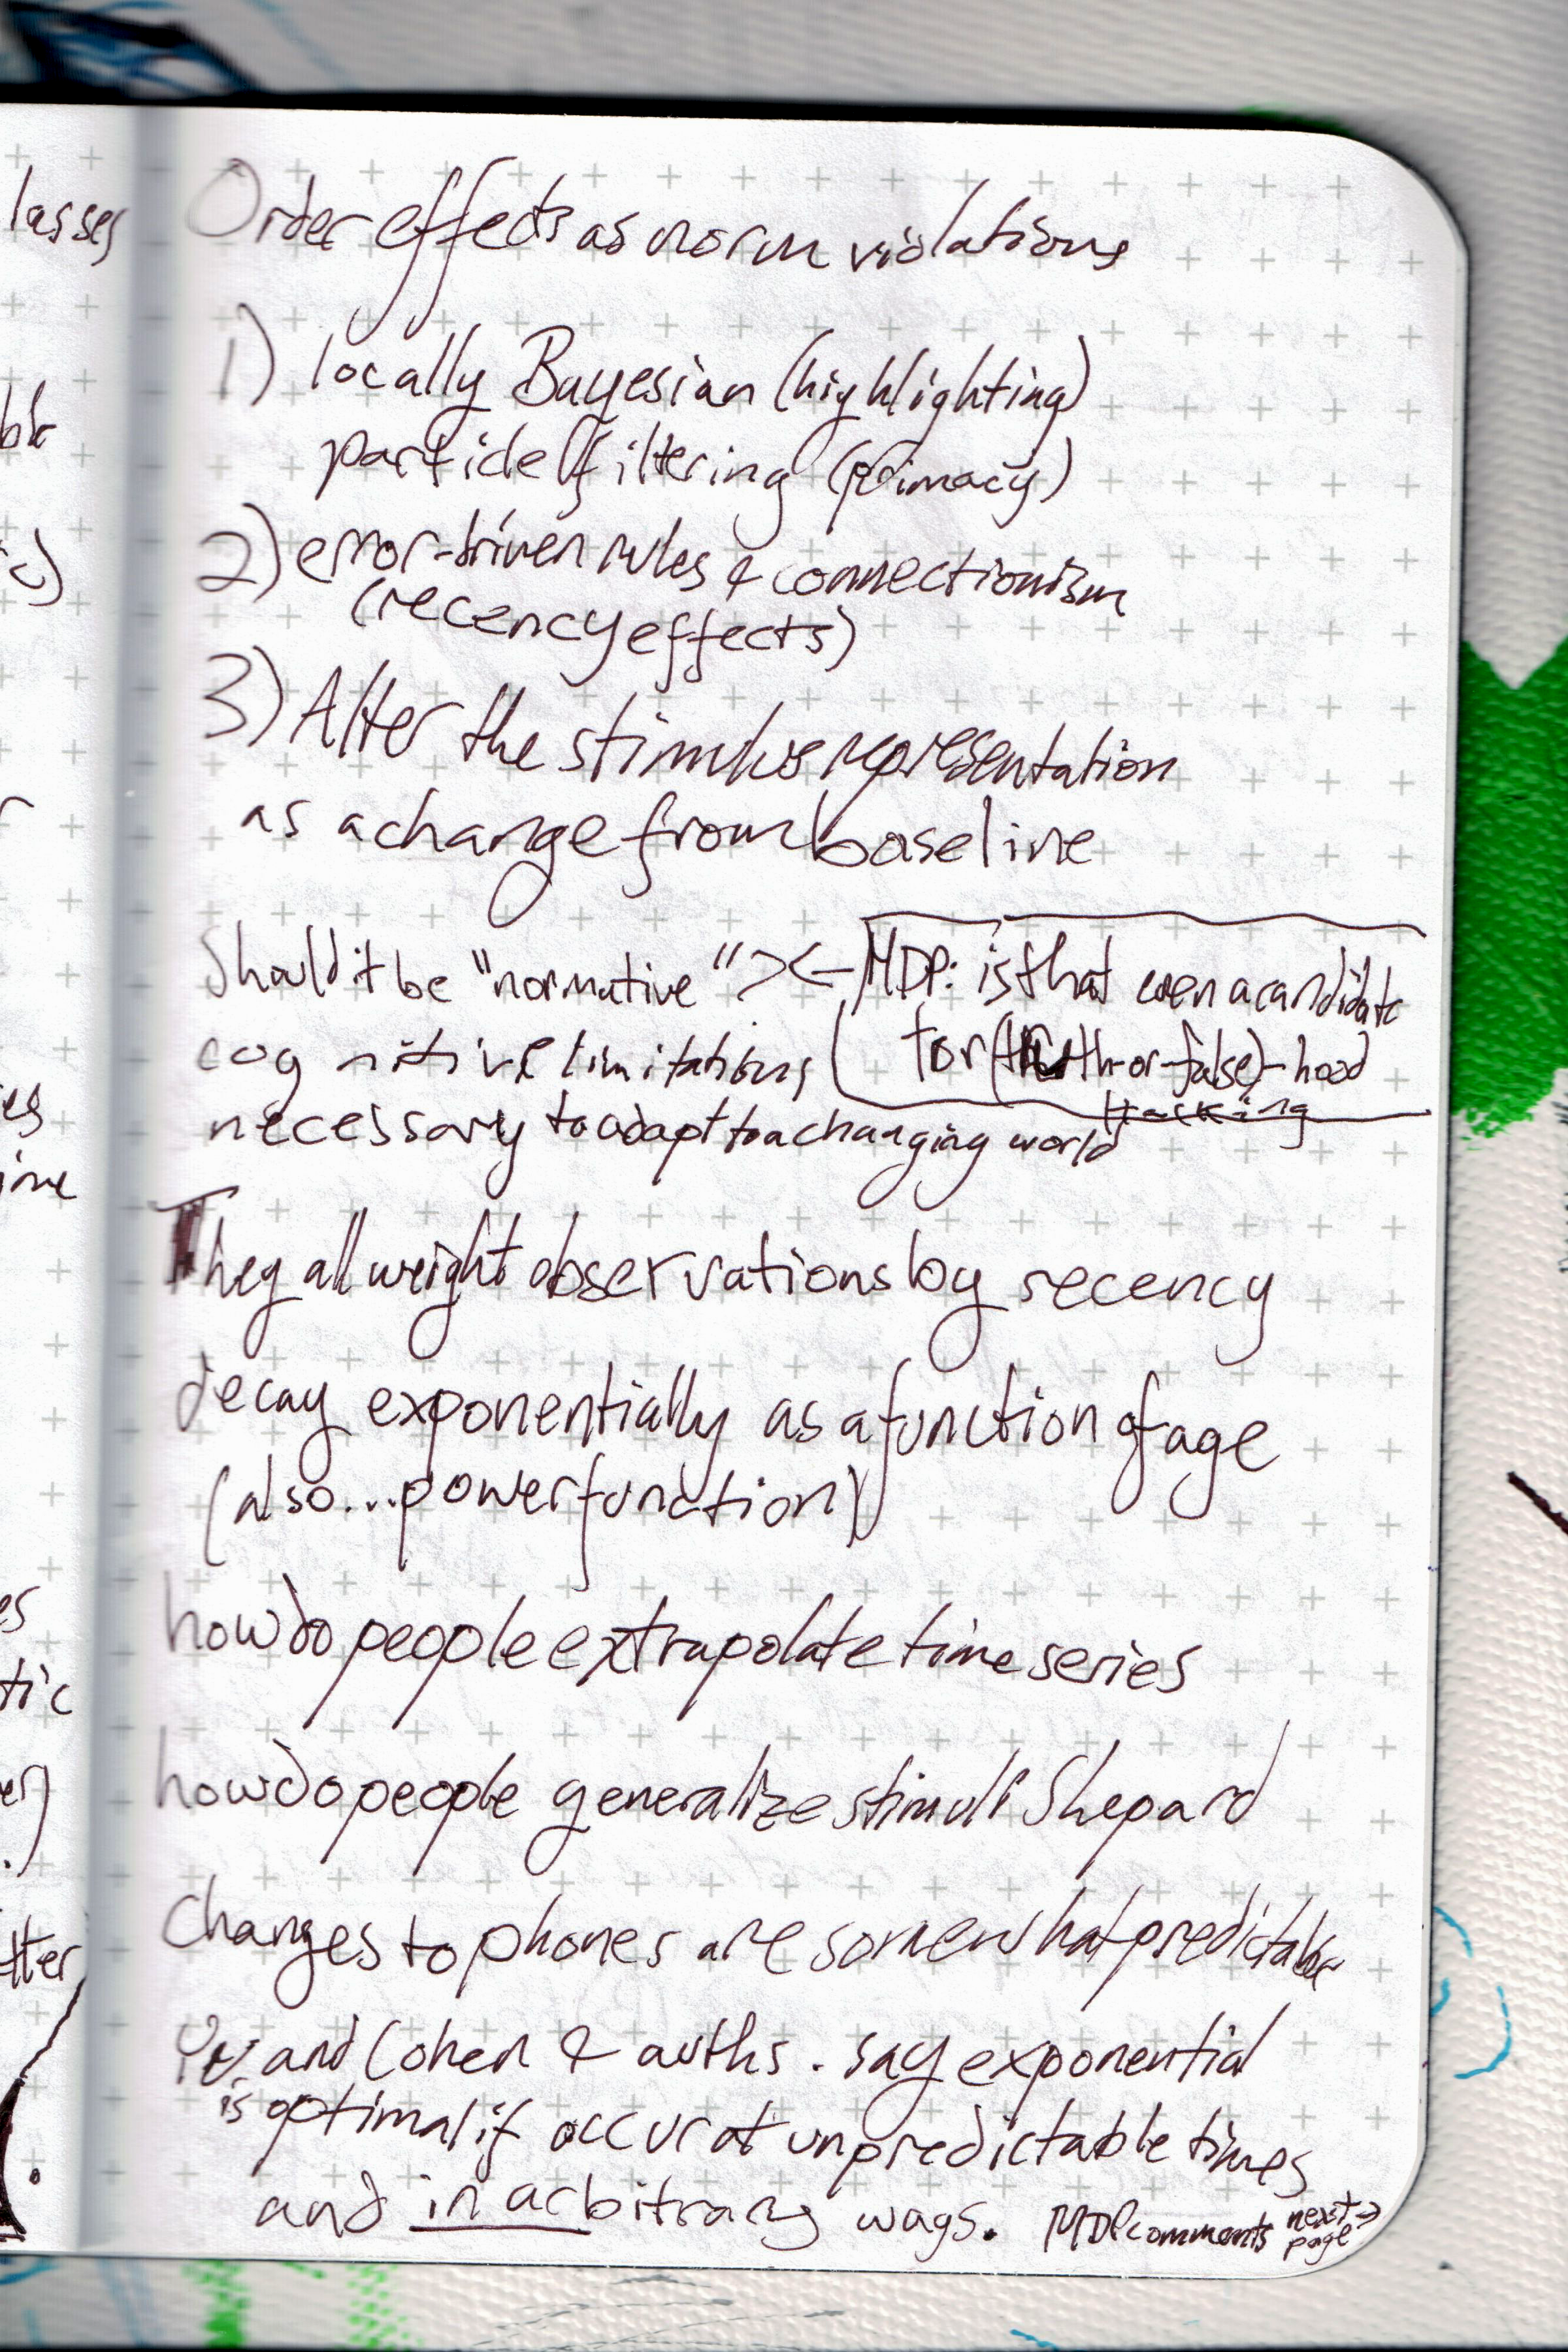 lasses
Order effects as norm violations
1) locally Bayesian (highlighting)
particle filtering (primacy)
2) error-driven rules & connectionism
(recency effects)
3) Alter the stimulus representation
as a change from baseline
Should it be "normative" >< MDP: is that even a candidate
for (truth-or-false)-hood
cognitive limitations
tracking
necessary to adapt to a changing world
They all weight observations by recency
decay exponentially as a function of age
(also... power function)
how do people extrapolate time series
how do people generalize stimuli Shepard
Changes to phones are somewhat predictable
Yu and Cohen & auths. say exponential
is optimal if occur at unpredictable times
and in arbitrary ways. MDP comments next →
page